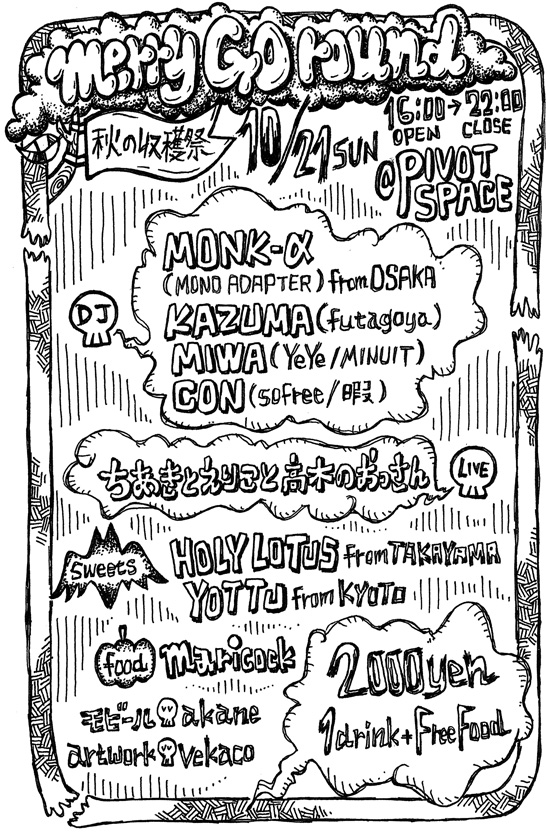 merry Go round
秋の収穫祭
10/21 SUN
16:00→22:00
OPEN CLOSE
@PIVOT SPACE
DJ
MONK-α
(MONO ADAPTER) from OSAKA
KAZUMA (futagoya)
MIWA (YeYe/MINUIT)
CON (sofree/暇)
ちあきとえりこと高木のおっさん
LIVE
sweets
HOLY LOTUS from TAKAYAMA
YOTTU from KYOTO
food maricock
モビール akane
artwork vekaco
2000yen
1drink+Free Food